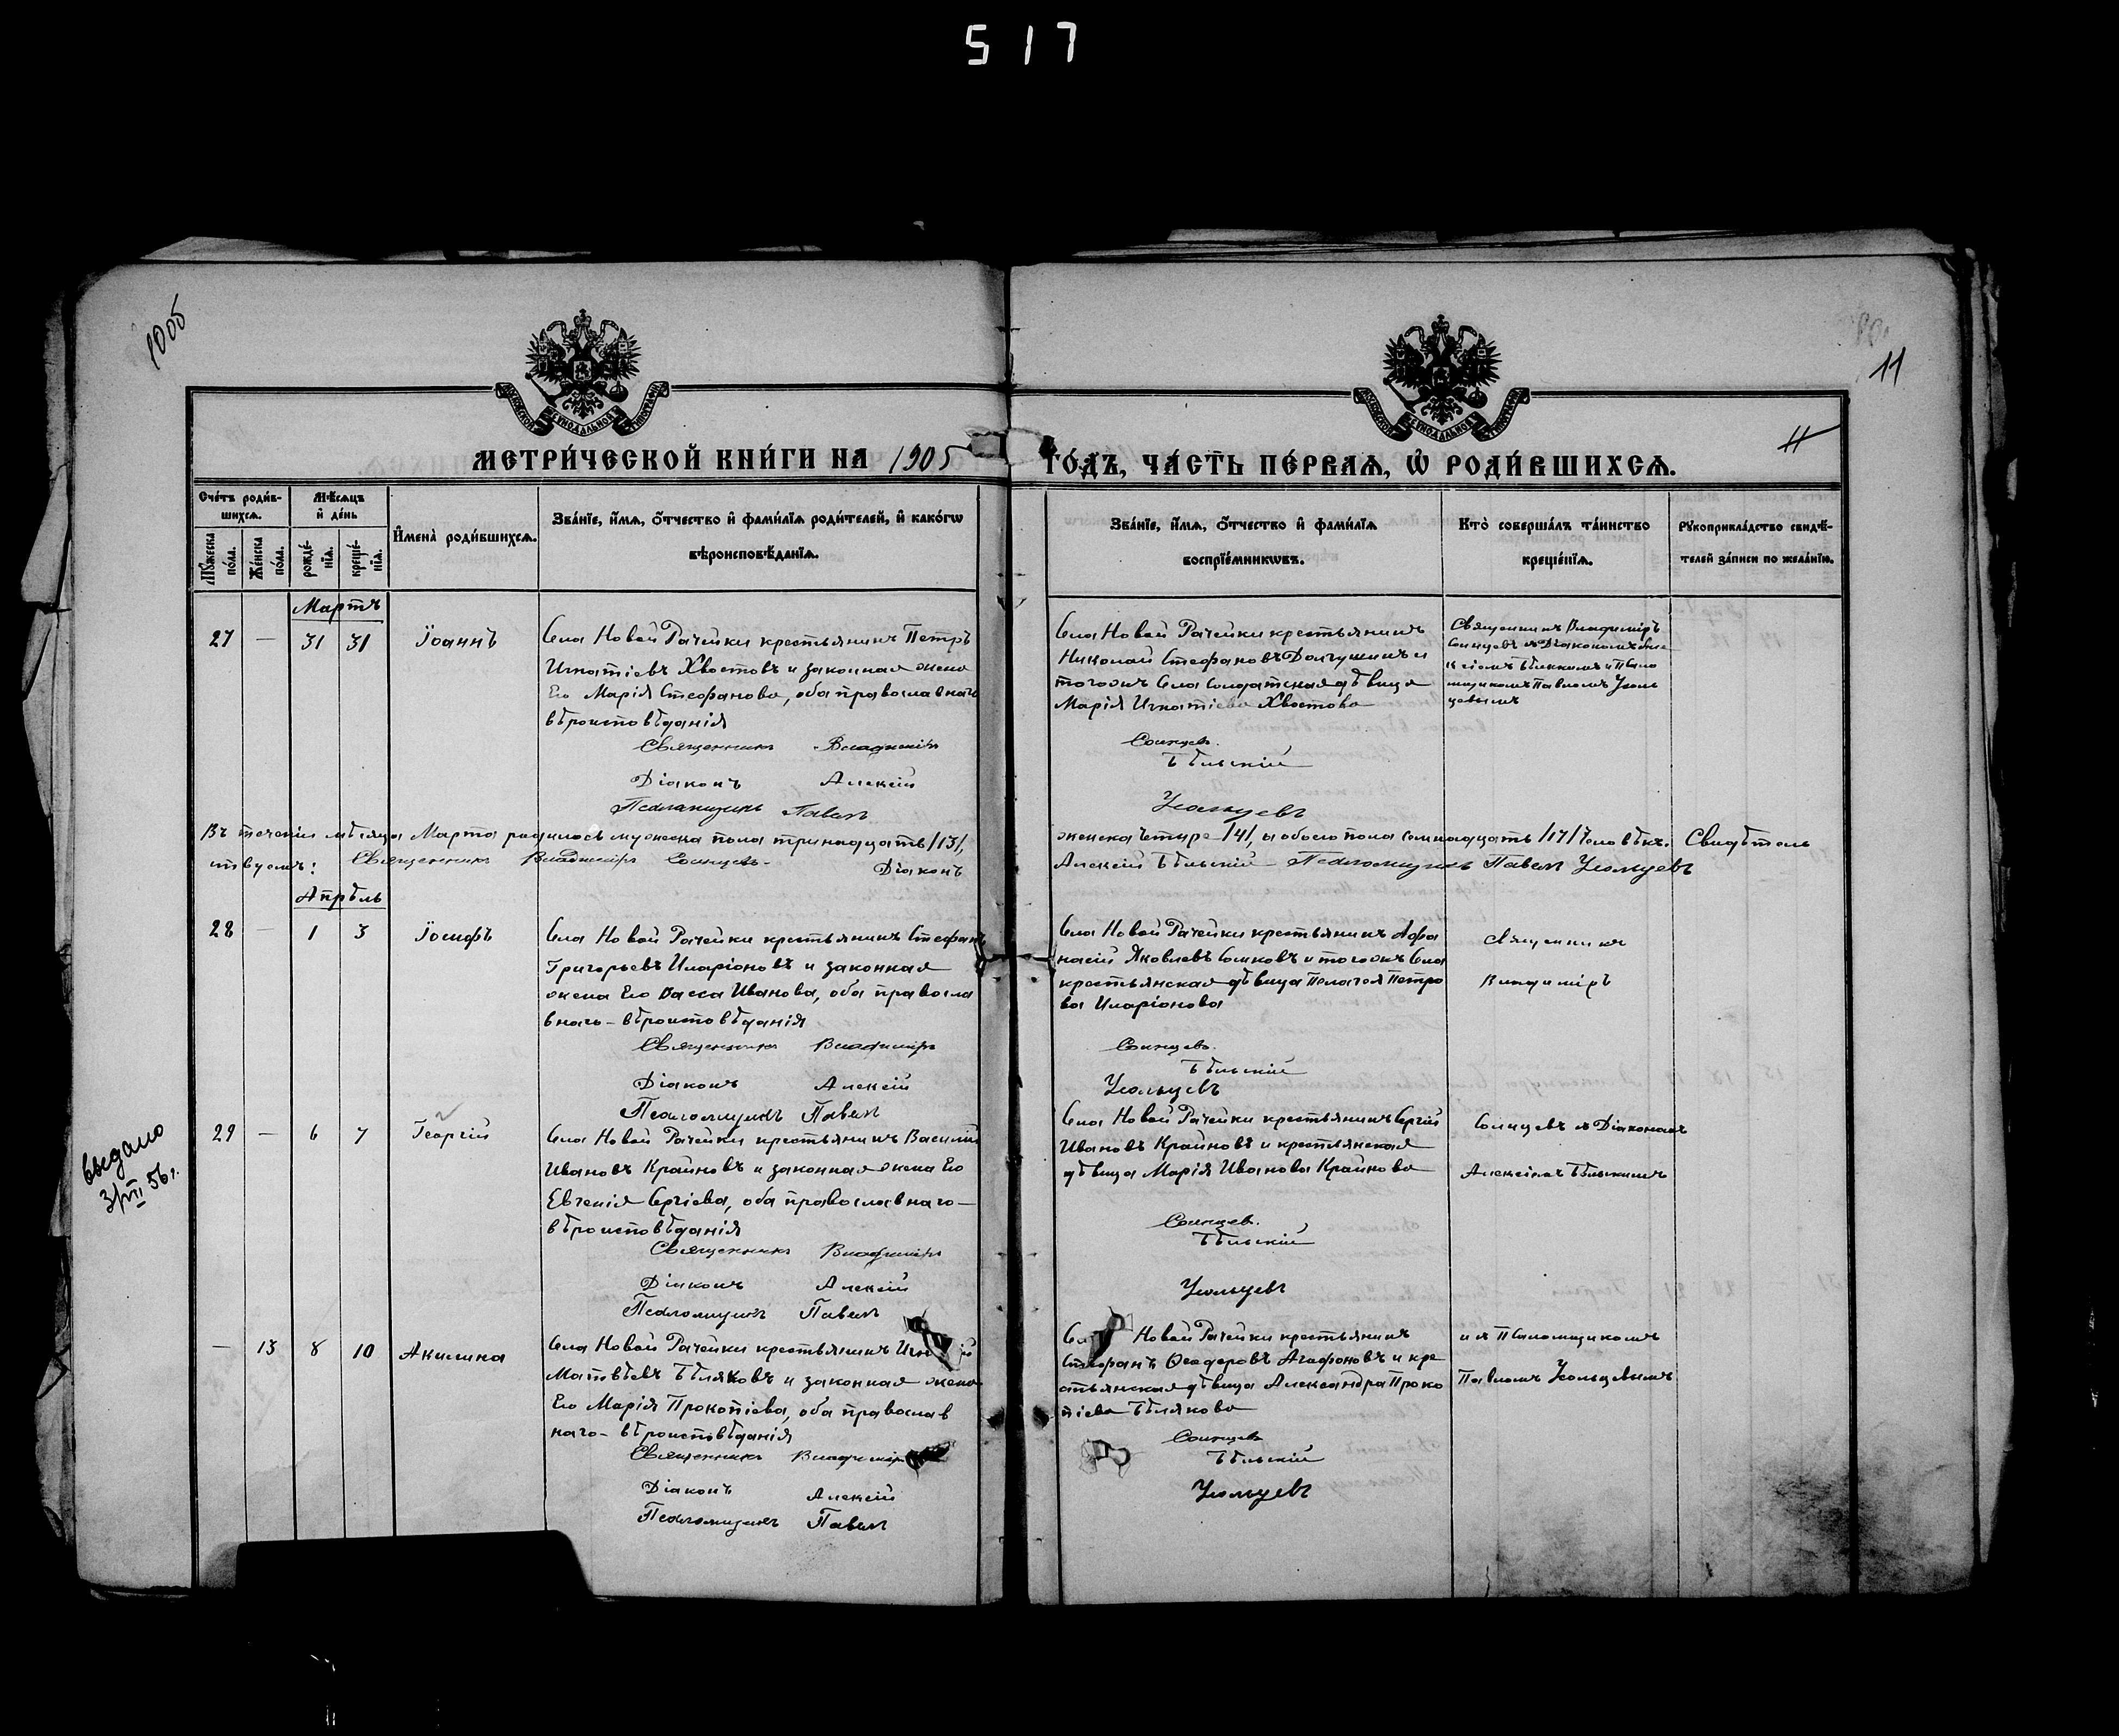 517
1905
11
11
МОСКОВСКОЙ СѴНОДАЛЬНОЙ ТИПОГРАФІИ
МОСКОВСКОЙ СѴНОДАЛЬНОЙ ТИПОГРАФІИ
МЕТРИ́ЧЕСКОЙ КНИ́ГИ НА 1905 ГО́ДЪ, ЧА́СТЬ ПЕ́РВАѦ, Ѽ РОДИ́ВШИХСѦ.
Сче́тъ роди́в-
шихсѧ.
Мѣ́сѧцъ
и҆ де́нь
Мꙋ́жеска по́ла.
Же́нска по́ла.
рожде́-нїѧ.
креще́-нїѧ.
И҆мена̀ роди́вшихсѧ.
Зва́нїе, и҆́мѧ, ѻ҆́тчество и҆ фами́лїѧ роди́телей, и҆ како́гѡ
вѣроисповѣ́данїѧ.
Зва́нїе, и҆́мѧ, ѻ҆́тчество и҆ фами́лїѧ
воспрїе́мникѡвъ.
Кто̀ соверша́лъ та́инство
креще́нїѧ.
Рꙋкоприкла́дство свидѣ́-
телей за́писи по жела́нїю.
Мартъ
27 — 31 31 Іоаннъ
Села Новой Рачейки крестьянинъ Петръ
Игнатіевъ Хвостовъ и законная жена
Его Марія Стефанова, оба православнаго
вѣроисповѣданія
Священникъ Владиміръ
Діаконъ Алексій
Псаломщикъ Павелъ
Села Новой Рачейки крестьянинъ
Николай Стефановъ Долгушинъ и
тогожъ Села Солдатская дѣвица
Марія Игнатіева Хвостова
Солнцевъ.
Бѣльскій
Усольцевъ
Священникъ Владиміръ
Солнцевъ съ Діакономъ Але-
ксіемъ Бѣльскимъ и Псало
мщикомъ Павломъ Усоль
цевымъ
Въ теченіи мѣсяца Марта родилось мужеска пола тринадцать /13/, женска четыре /4/, а обоего пола семнадцать /17/ человѣкъ. Свидѣтель
ствуемъ: Священникъ Владиміръ Солнцевъ. Діаконъ Алексій Бѣльскій Псаломщикъ Павелъ Усольцевъ
Апрѣль
28 — 1 3 Іосифъ
Села Новой Рачейки крестьянинъ Стефанъ
Григорьевъ Иларіоновъ и законная
жена Его Васса Иванова, оба правосла
внаго - вѣроисповѣданія
Священникъ Владиміръ
Діаконъ Алексій
Псаломщикъ Павелъ
Села Новой Рачейки крестьянинъ Афа
насій Яковлевъ Сомковъ и тогожъ Села
крестьянская дѣвица Пелагея Петро
ва Иларіонова
Солнцевъ.
Бѣльскій
Усольцевъ
Священникъ
Владиміръ
выдано
3/VII 56 г.
29 — 6 7 Георгій
Села Новой Рачейки крестьянинъ Василій
Ивановъ Крайновъ и законная жена Его
Евгенія Сергіева, оба православнаго —
вѣроисповѣданія
Священникъ Владиміръ
Діаконъ Алексій
Псаломщикъ Павелъ
Села Новой Рачейки крестьянинъ Сергій
Ивановъ Крайновъ и крестьянская
дѣвица Марія Иванова Крайнова
Солнцевъ.
Бѣльскій
Усольцевъ
Солнцевъ съ Діакономъ
Алексіемъ Бѣльскимъ
— 13 8 10 Акилина
Села Новой Рачейки крестьянинъ
Матвѣевъ Бѣляковъ и законная жена
Его Марія Прокопіева, оба православ
наго - вѣроисповѣданія
Священникъ Владиміръ
Діаконъ Алексій
Псаломщикъ Павелъ
Новой Рачейки крестьянинъ
Стефанъ Ѳеодоровъ Агафоновъ и кре
стьянская дѣвица Александра Проко
піева Бѣлякова
Солнцевъ
Бѣльскій
Усольцевъ
и съ Псаломщикомъ
Павломъ Усольцевымъ